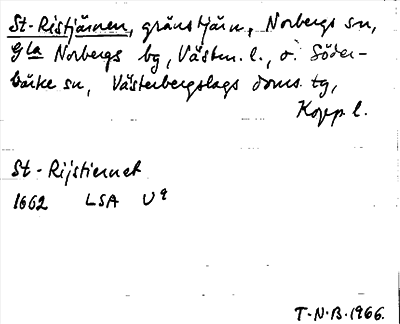 St-Ristjärnen, gränstjärn, Norbergs sn,
Gla Norbergs bg, Västm. l., o. Söder-
bärke sn, Västerbergslags doms. tg,
Kopp. l.
St-Rijstiernet
1662 LSA U9
T.N.B.1966.